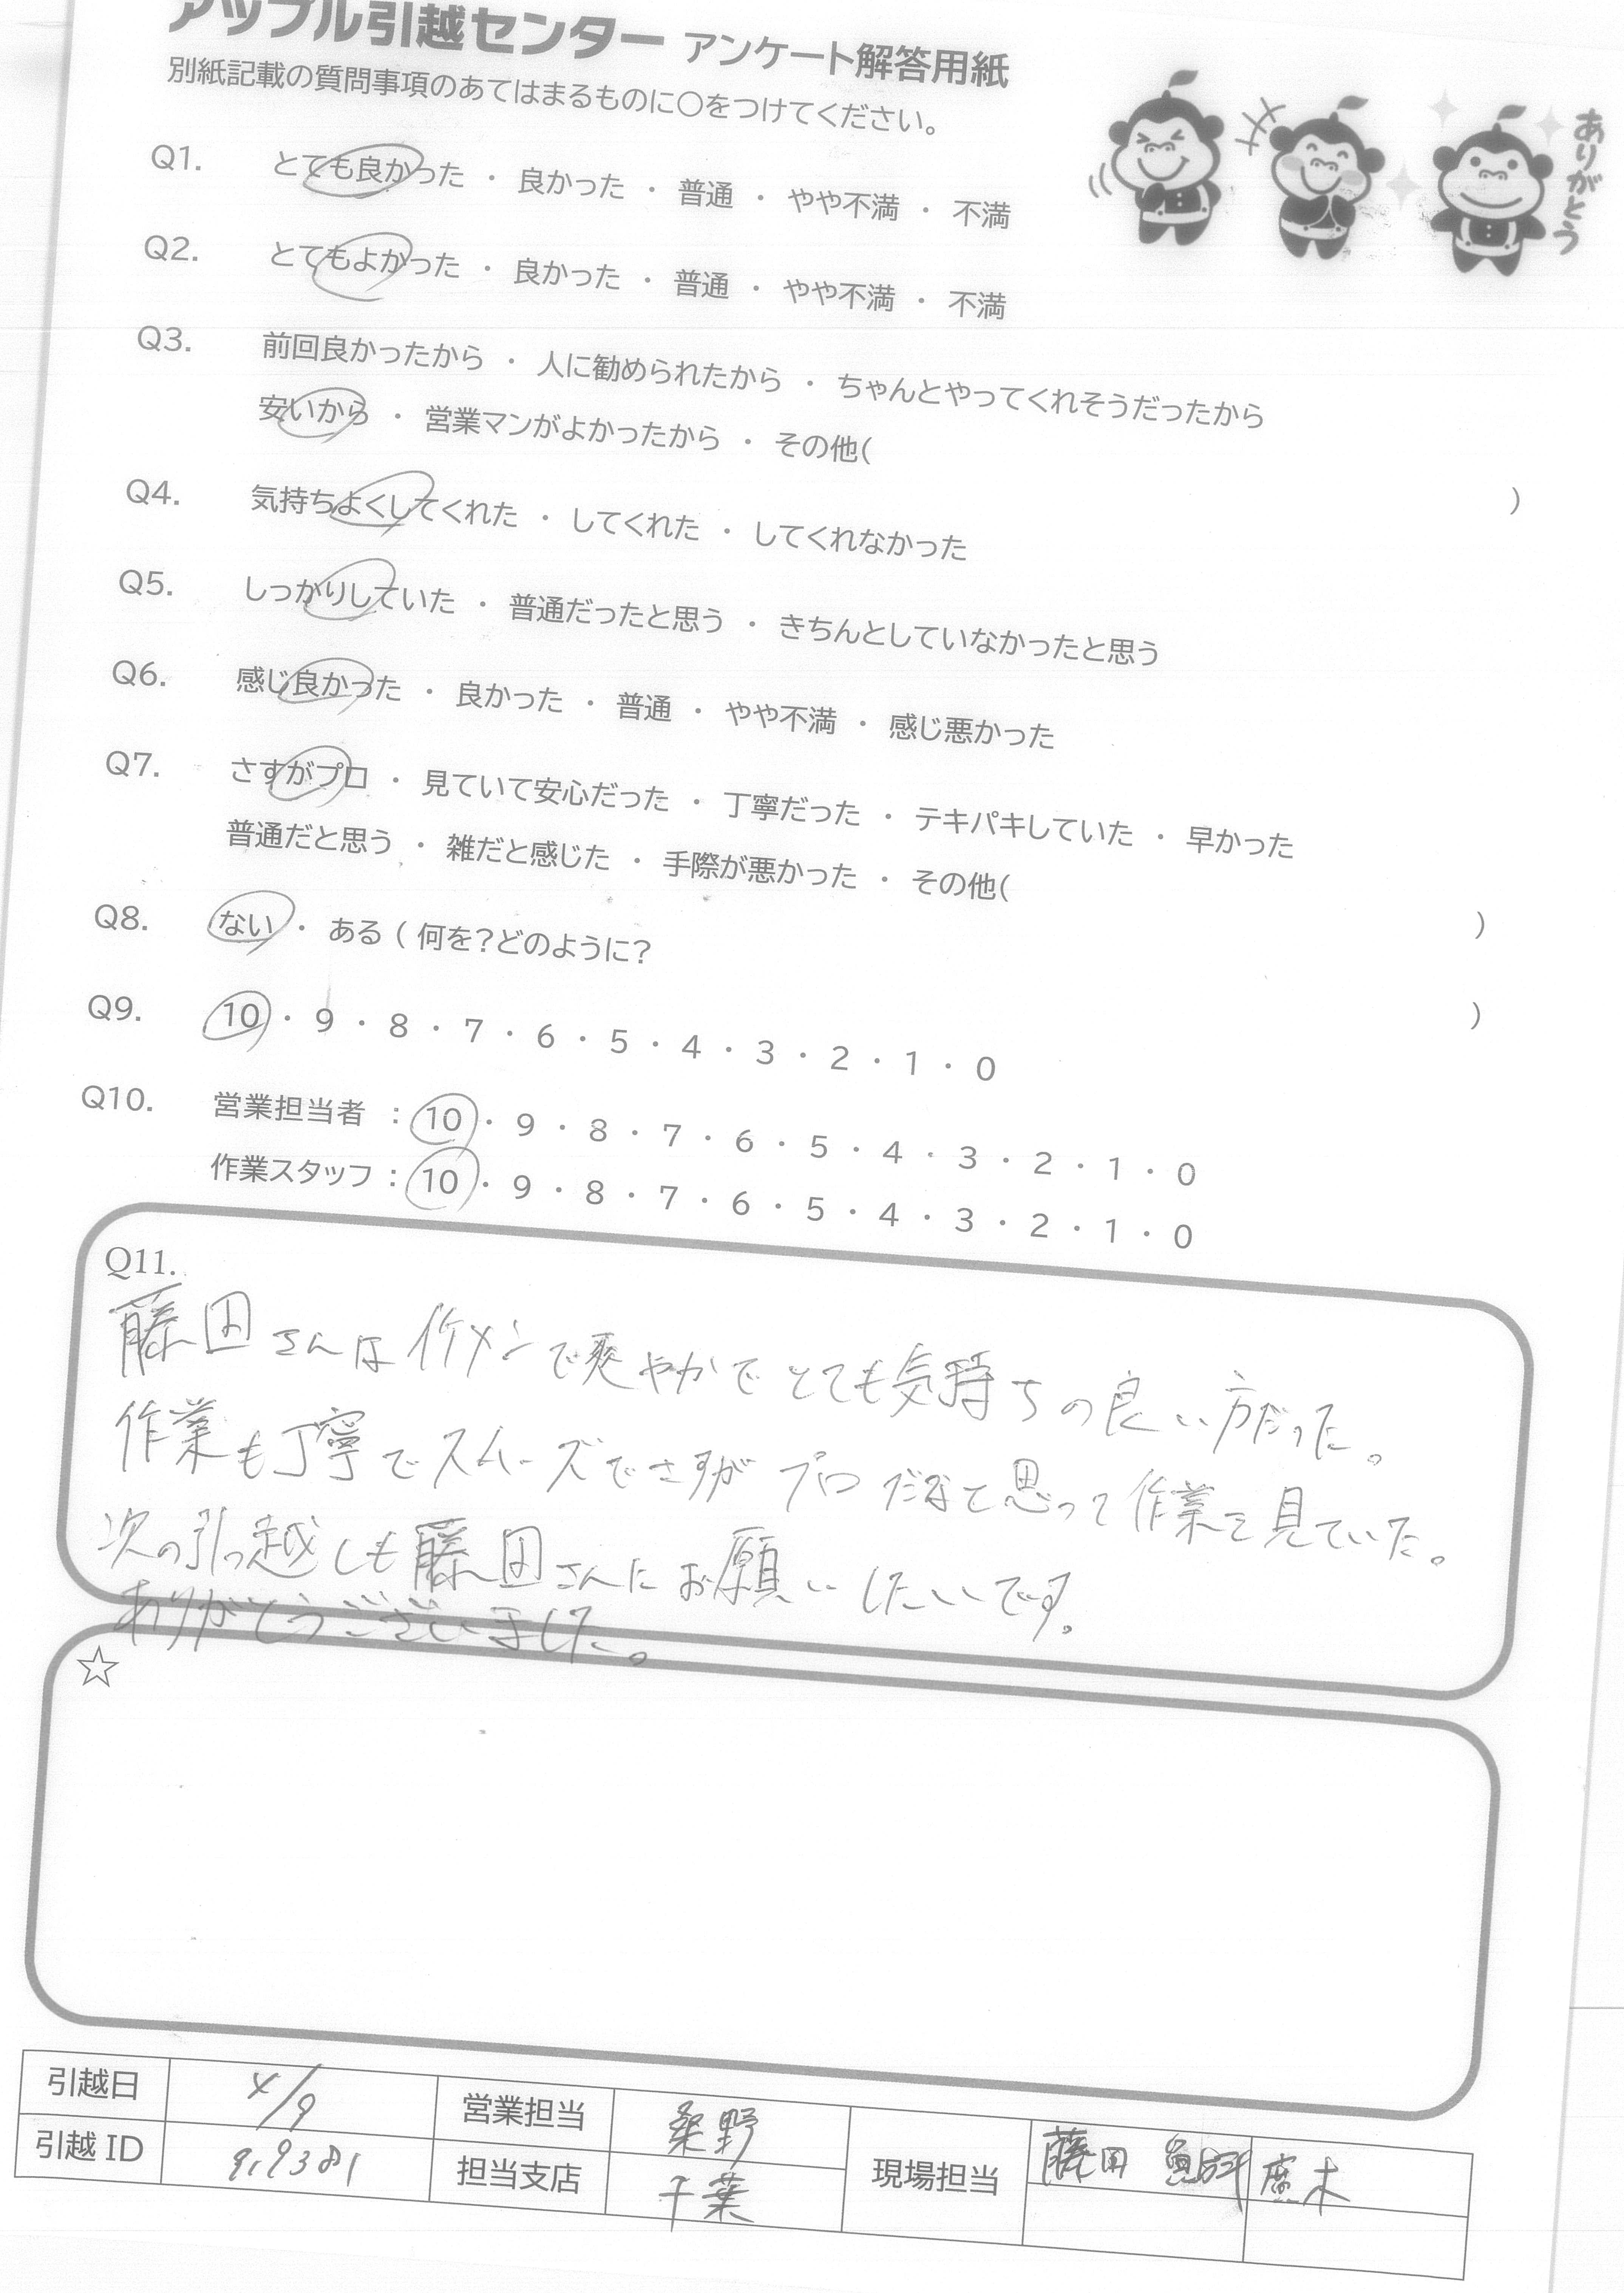 アップル引越センター アンケート解答用紙
別紙記載の質問事項のあてはまるものに○をつけてください。
ありがとう
Q1. とても良かった ・ 良かった ・ 普通 ・ やや不満 ・ 不満
Q2. とてもよかった ・ 良かった ・ 普通 ・ やや不満 ・ 不満
Q3. 前回良かったから ・ 人に勧められたから ・ ちゃんとやってくれそうだったから
安いから ・ 営業マンがよかったから ・ その他( )
Q4. 気持ちよくしてくれた ・ してくれた ・ してくれなかった
Q5. しっかりしていた ・ 普通だったと思う ・ きちんとしていなかったと思う
Q6. 感じ良かった ・ 良かった ・ 普通 ・ やや不満 ・ 感じ悪かった
Q7. さすがプロ ・ 見ていて安心だった ・ 丁寧だった ・ テキパキしていた ・ 早かった
普通だと思う ・ 雑だと感じた ・ 手際が悪かった ・ その他( )
Q8. ない ・ ある ( 何を?どのように? )
Q9. 10 ・ 9 ・ 8 ・ 7 ・ 6 ・ 5 ・ 4 ・ 3 ・ 2 ・ 1 ・ 0
Q10. 営業担当者 : 10 ・ 9 ・ 8 ・ 7 ・ 6 ・ 5 ・ 4 ・ 3 ・ 2 ・ 1 ・ 0
作業スタッフ : 10 ・ 9 ・ 8 ・ 7 ・ 6 ・ 5 ・ 4 ・ 3 ・ 2 ・ 1 ・ 0
Q11.
藤田さんはイケメンで爽やかでとても気持ちの良い方だった。
作業も丁寧でスムーズでさすがプロだなと思って作業を見ていた。
次の引っ越しも藤田さんにお願いしたいです。
ありがとうございました。
☆
引越日 4/9 営業担当 桑野 現場担当 藤田
引越ID 919381 担当支店 千葉